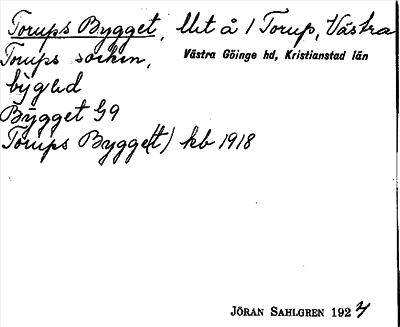 Torups Bygget, Ut å 1 Torup, Västra
Torups socken, Västra Göinge hd, Kristianstad län
bygəd
Bygget G9
Torups Bygge(t) kb 1918
JÖRAN SAHLGREN 1924